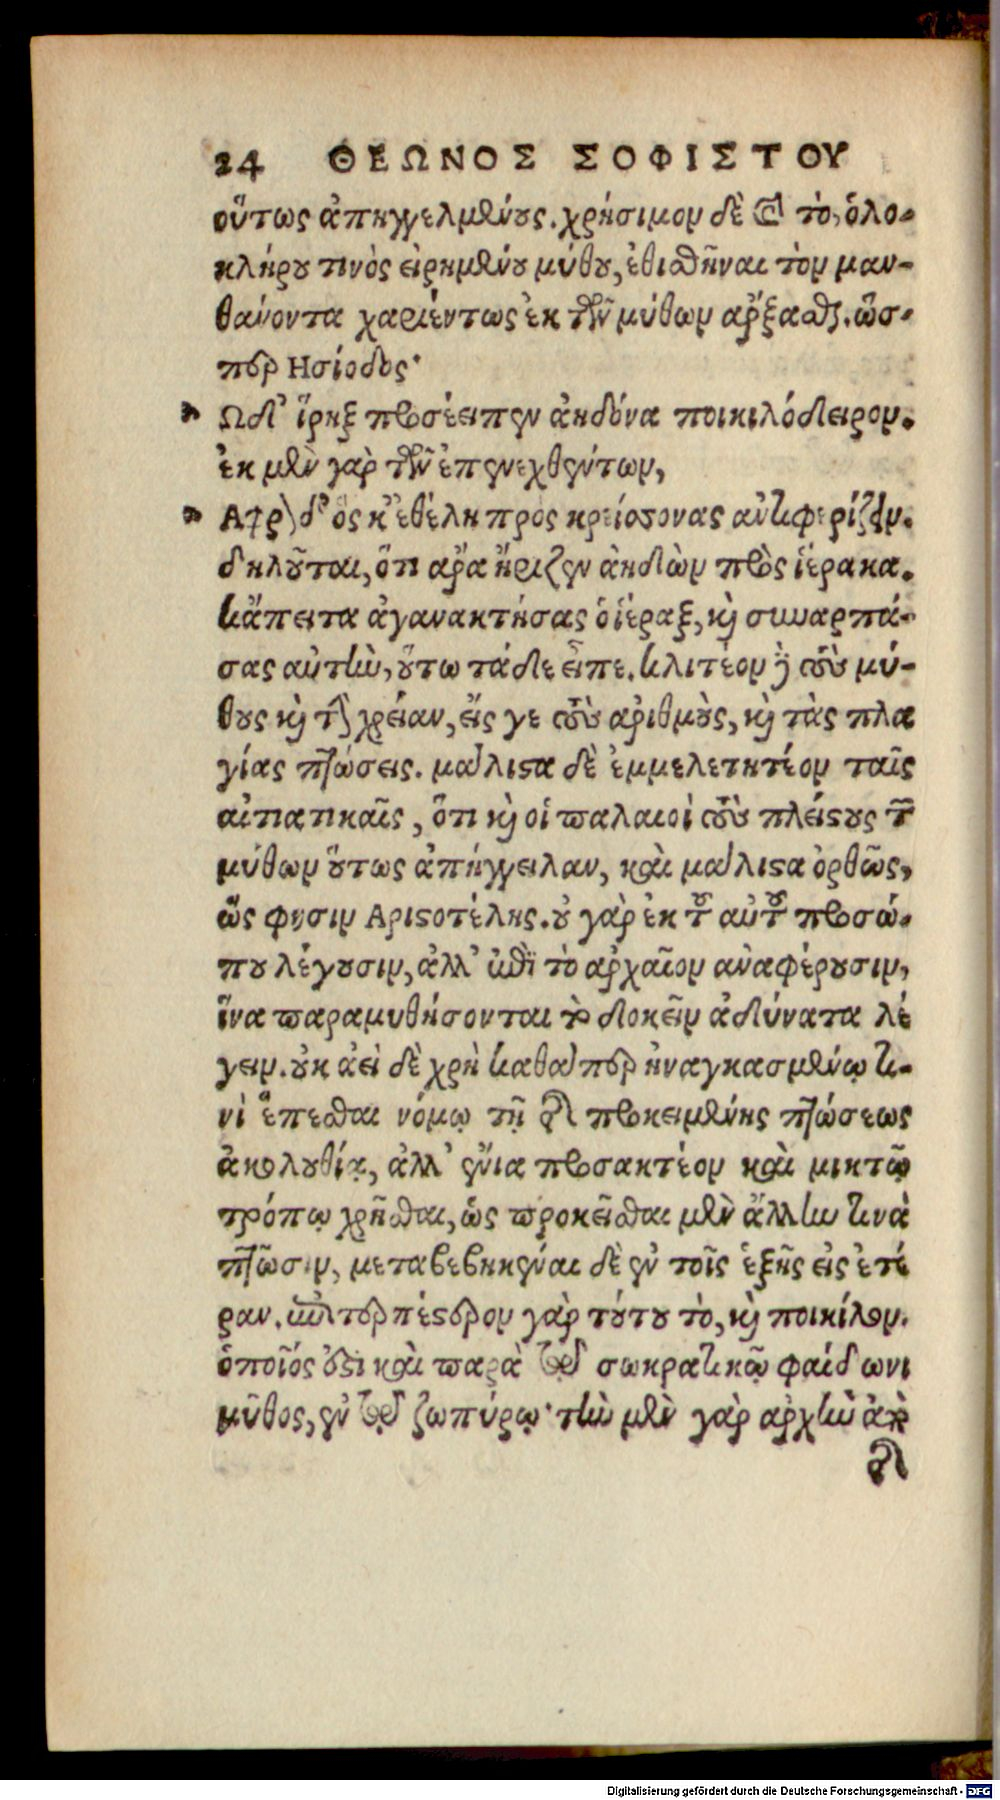 24 ΘΕΩΝΟΣ ΣΟΦΙΣΤΟΥ
οὕτως ἀπηγγελμένους. χρήσιμον δὲ καὶ τὸ, ὁλο-
κλήρου τινὸς εἰρημένου μύθου, ἐθισθῆναι τὸν μαν-
θάνοντα χαριέντως ἐκ τῶν μύθων ἄρξασθαι. ὥσ-
περ Ησίοδος·
Ωδ' ἵρηξ προσέειπεν ἀηδόνα ποικιλόδειρον.
ἐκ μὲν γὰρ τῶν ἐπενεχθέντων,
Αφρων δ' ὅς κ' ἐθέλῃ πρὸς κρείσσονας ἀντιφερίζειν.
δηλοῦται, ὅτι ἄρα ἤριζεν ἀηδὼν πρὸς ἱέρακα.
κἄπειτα ἀγανακτήσας ὁ ἱέραξ, καὶ συναρπά-
σας αὐτὴν, οὕτω τάδε εἶπε. κλιτέον δὲ τοὺς μύ-
θους καὶ τὴν χρείαν, εἴς γε τοὺς ἀριθμοὺς, καὶ τὰς πλα
γίας πτώσεις. μάλιστα δὲ ἐμμελετητέον ταῖς
αἰτιατικαῖς, ὅτι καὶ οἱ παλαιοὶ τοὺς πλείστους τῶν
μύθων οὕτως ἀπήγγειλαν, καὶ μάλιστα ὀρθῶς,
ὥς φησιν Αριστοτέλης. οὐ γὰρ ἐκ τοῦ αὐτοῦ προσώ-
που λέγουσιν, ἀλλ' ἐπὶ τὸ ἀρχαῖον ἀναφέρουσιν,
ἵνα παραμυθήσονται τὸ δοκεῖν ἀδύνατα λέ
γειν. οὐκ ἀεὶ δὲ χρὴ καθάπερ ἠναγκασμένῳ τι-
νὶ ἕπεσθαι νόμῳ τῇ τῆς προκειμένης πτώσεως
ἀκολουθίᾳ, ἀλλ' ἔνια προσακτέον καὶ μικτῷ
τρόπῳ χρῆσθαι, ὡς προκεῖσθαι μὲν ἄλλην τινὰ
πτῶσιν, μεταβεβηκέναι δὲ ἐν τοῖς ἑξῆς εἰς ἑτέ
ραν. εὐπερπέστερον γὰρ τούτου τὸ, καὶ ποικίλον.
ὁποῖός ἐστι καὶ παρὰ τῷ σωκρατικῷ φαίδωνι
μῦθος, ἐν τῷ ζωπύρῳ· τὴν μὲν γὰρ ἀρχὴν ἀπὸ
τῆς
Digitalisierung gefördert durch die Deutsche Forschungsgemeinschaft - DFG